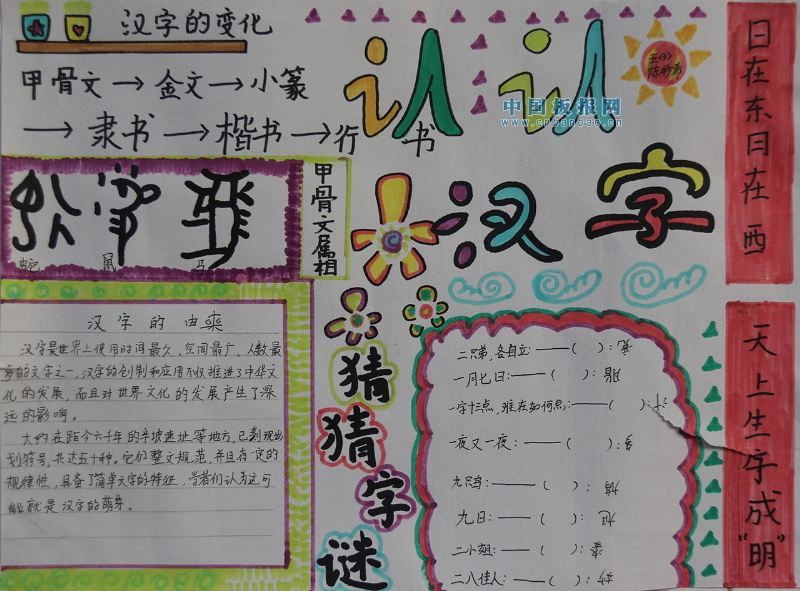 汉字的变化
甲骨文→金文→小篆
→隶书→楷书→行书
认认
汉字
五(3)
中国板报网
www.cnbanbao.cn
甲骨文属相
蛇 鼠 马
汉字的由来
汉字是世界上使用时间最久、空间最广、人数最
多的文字之一,汉字的创制和应用不仅推进了中华文
化的发展,而且对世界文化的发展产生了深
远的影响。
大约在距今六千年的半坡遗址等地方,已刻现出
划符号,共达五十种。它们整文规范,并且有一定的
规律性,具备了简单文字的特征,学者们认为这可
能就是汉字的萌芽。
猜猜字谜
二兄弟,各自立:——( ):竞
一月七日:——( ):
一字十三点,难在如何点:——( ):汁
一夜又一夜:——( ):多
九只鸟:——( ):鸠
九日:——( ):旭
二小姐:——( ):姿
二八佳人:——( ):妙
日在东曰在西
天上生字成"明"